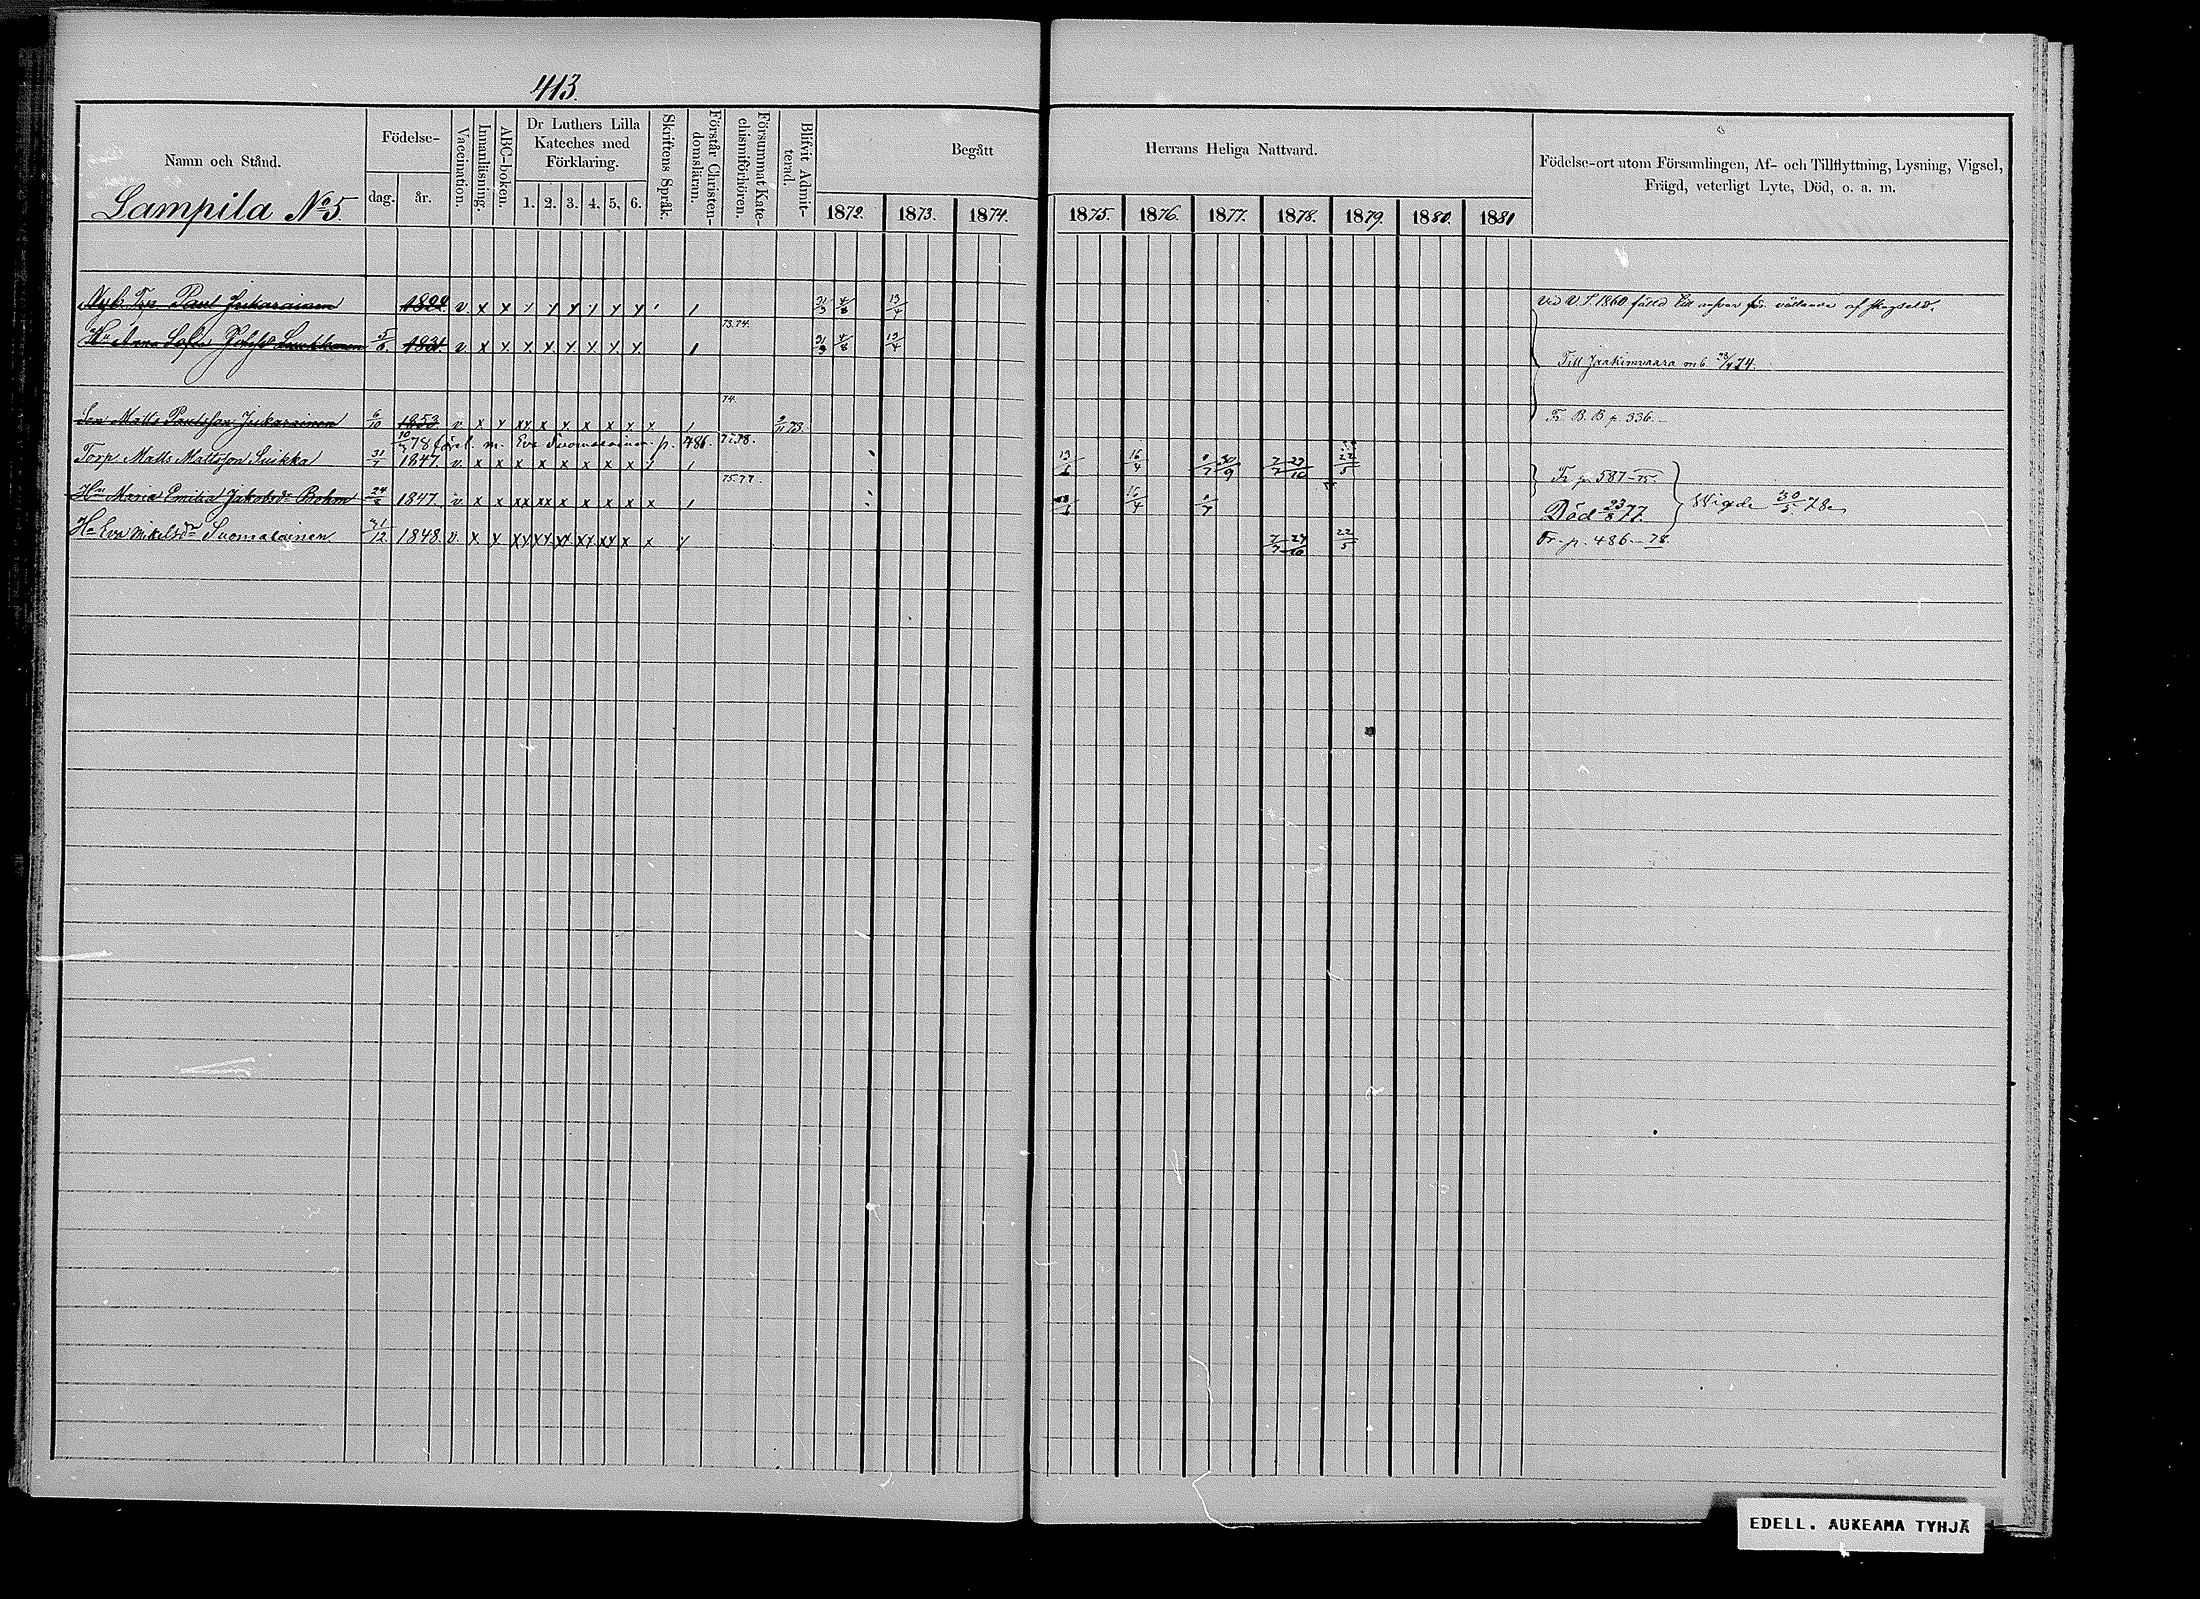 413.
Namn och Stånd.
Födelse-
dag.
år.
Vaccination.
Innanläsning.
ABC-boken.
Dr Luthers Lilla
Kateches med
Förklaring.
1. 2. 3. 4. 5. 6.
Skriftens Språk.
Förstår Christen-
domsläran.
Försummat Kate-
chismiförhören.
Blifvit Admit-
terad.
Begått
Herrans Heliga Nattvard.
1872. 1873. 1874. 1875. 1876. 1877. 1878. 1879. 1880. 1881
Födelse-ort utom Församlingen, Af- och Tillflyttning, Lysning, Vigsel,
Frägd, veterligt Lyte, Död, o. a. m.
Lampila No 5.
Paul Jukarainen 1822. v x x 31/3 4/8 13/4
Hu Anna Sofia 5/6 1831. v x x 73.74. 31/3 4/8 13/4
Till Jaakimvaara m b. 23/4 74.
Son Matts Paulsson Jukarainen 6/10 1853. v x x xx x x x x x x 74. 9/11 73 Fr B. B p. 336.
10/3 78 förel. m. Eva Suomalainen p. 486.
Torp Matts Mattsson Suikka 31/7 1847. v x x x x x x x x 13/6 16/4 1/7 30/9 7/7 27/10 22/5 Fr p. 587-75.
Hu Maria Emilia Jakobsdr Bohm 24/2 1847. v x x xx xx x x x x x 75.77. 13/6 16/4 1/7 Död 23/8 77. Wigde 30/5 78.
Hu Eva Mikelsdr Suomalainen 31/12 1848 v. x x xx xx xx xx xx x x 7/7 27/10 22/5 Fr. p. 486-78.
EDELL. AUKEAMA TYHJÄ